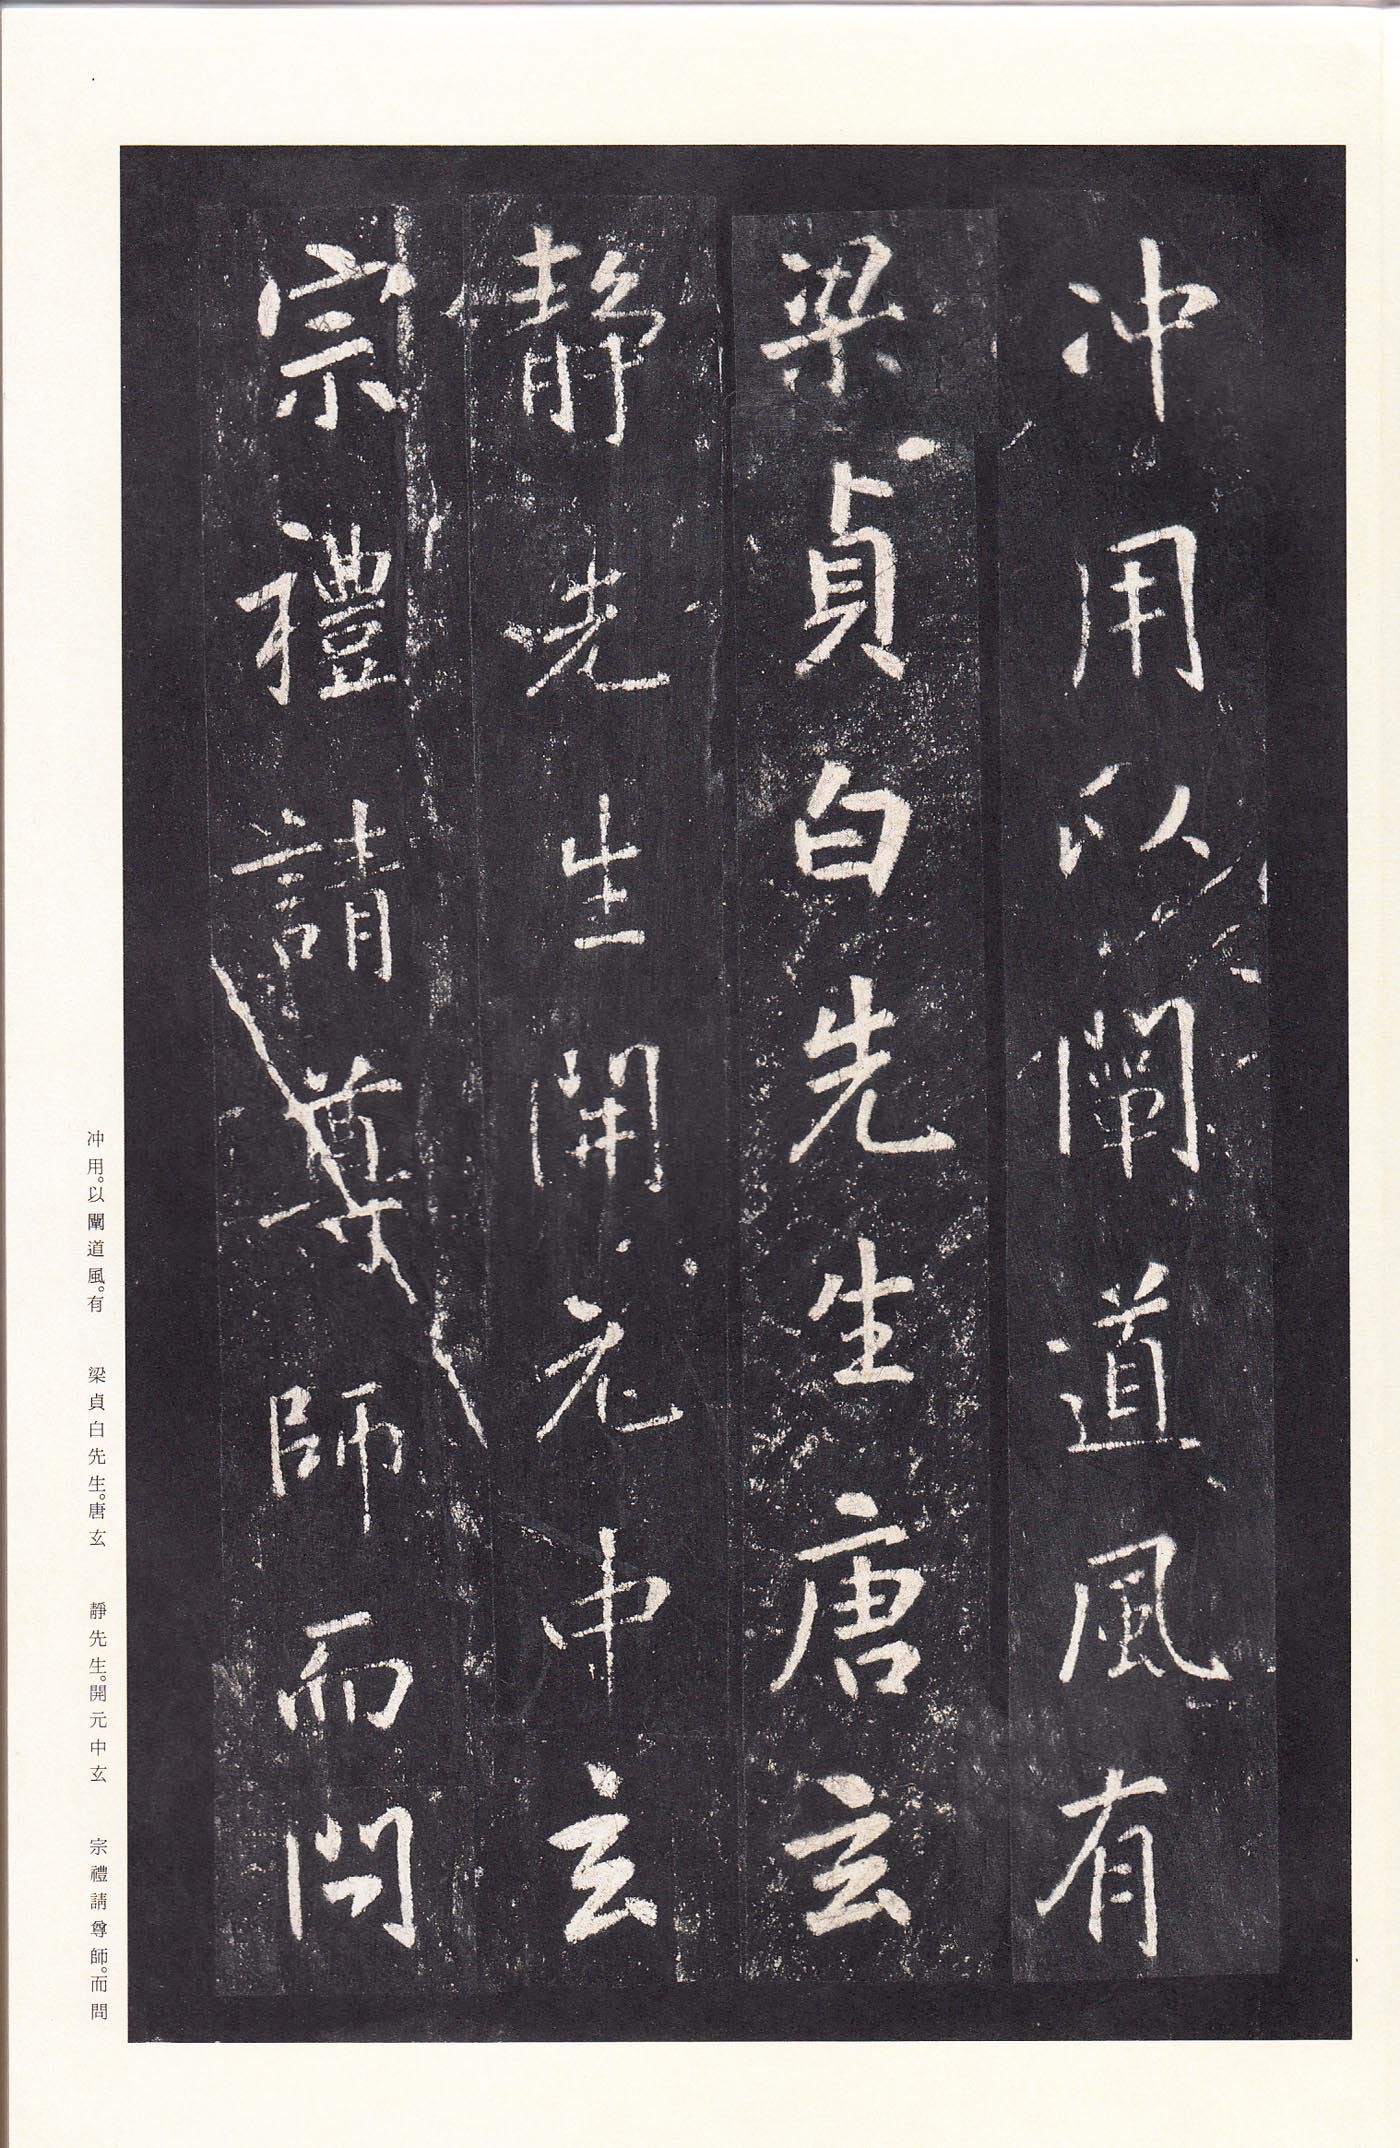 冲用以闡道風有
梁貞白先生唐玄
靜先生開元中玄
宗禮請尊師而問
冲用。以闡道風。有　梁貞白先生。唐玄　靜先生。開元中玄　宗禮請尊師。而問